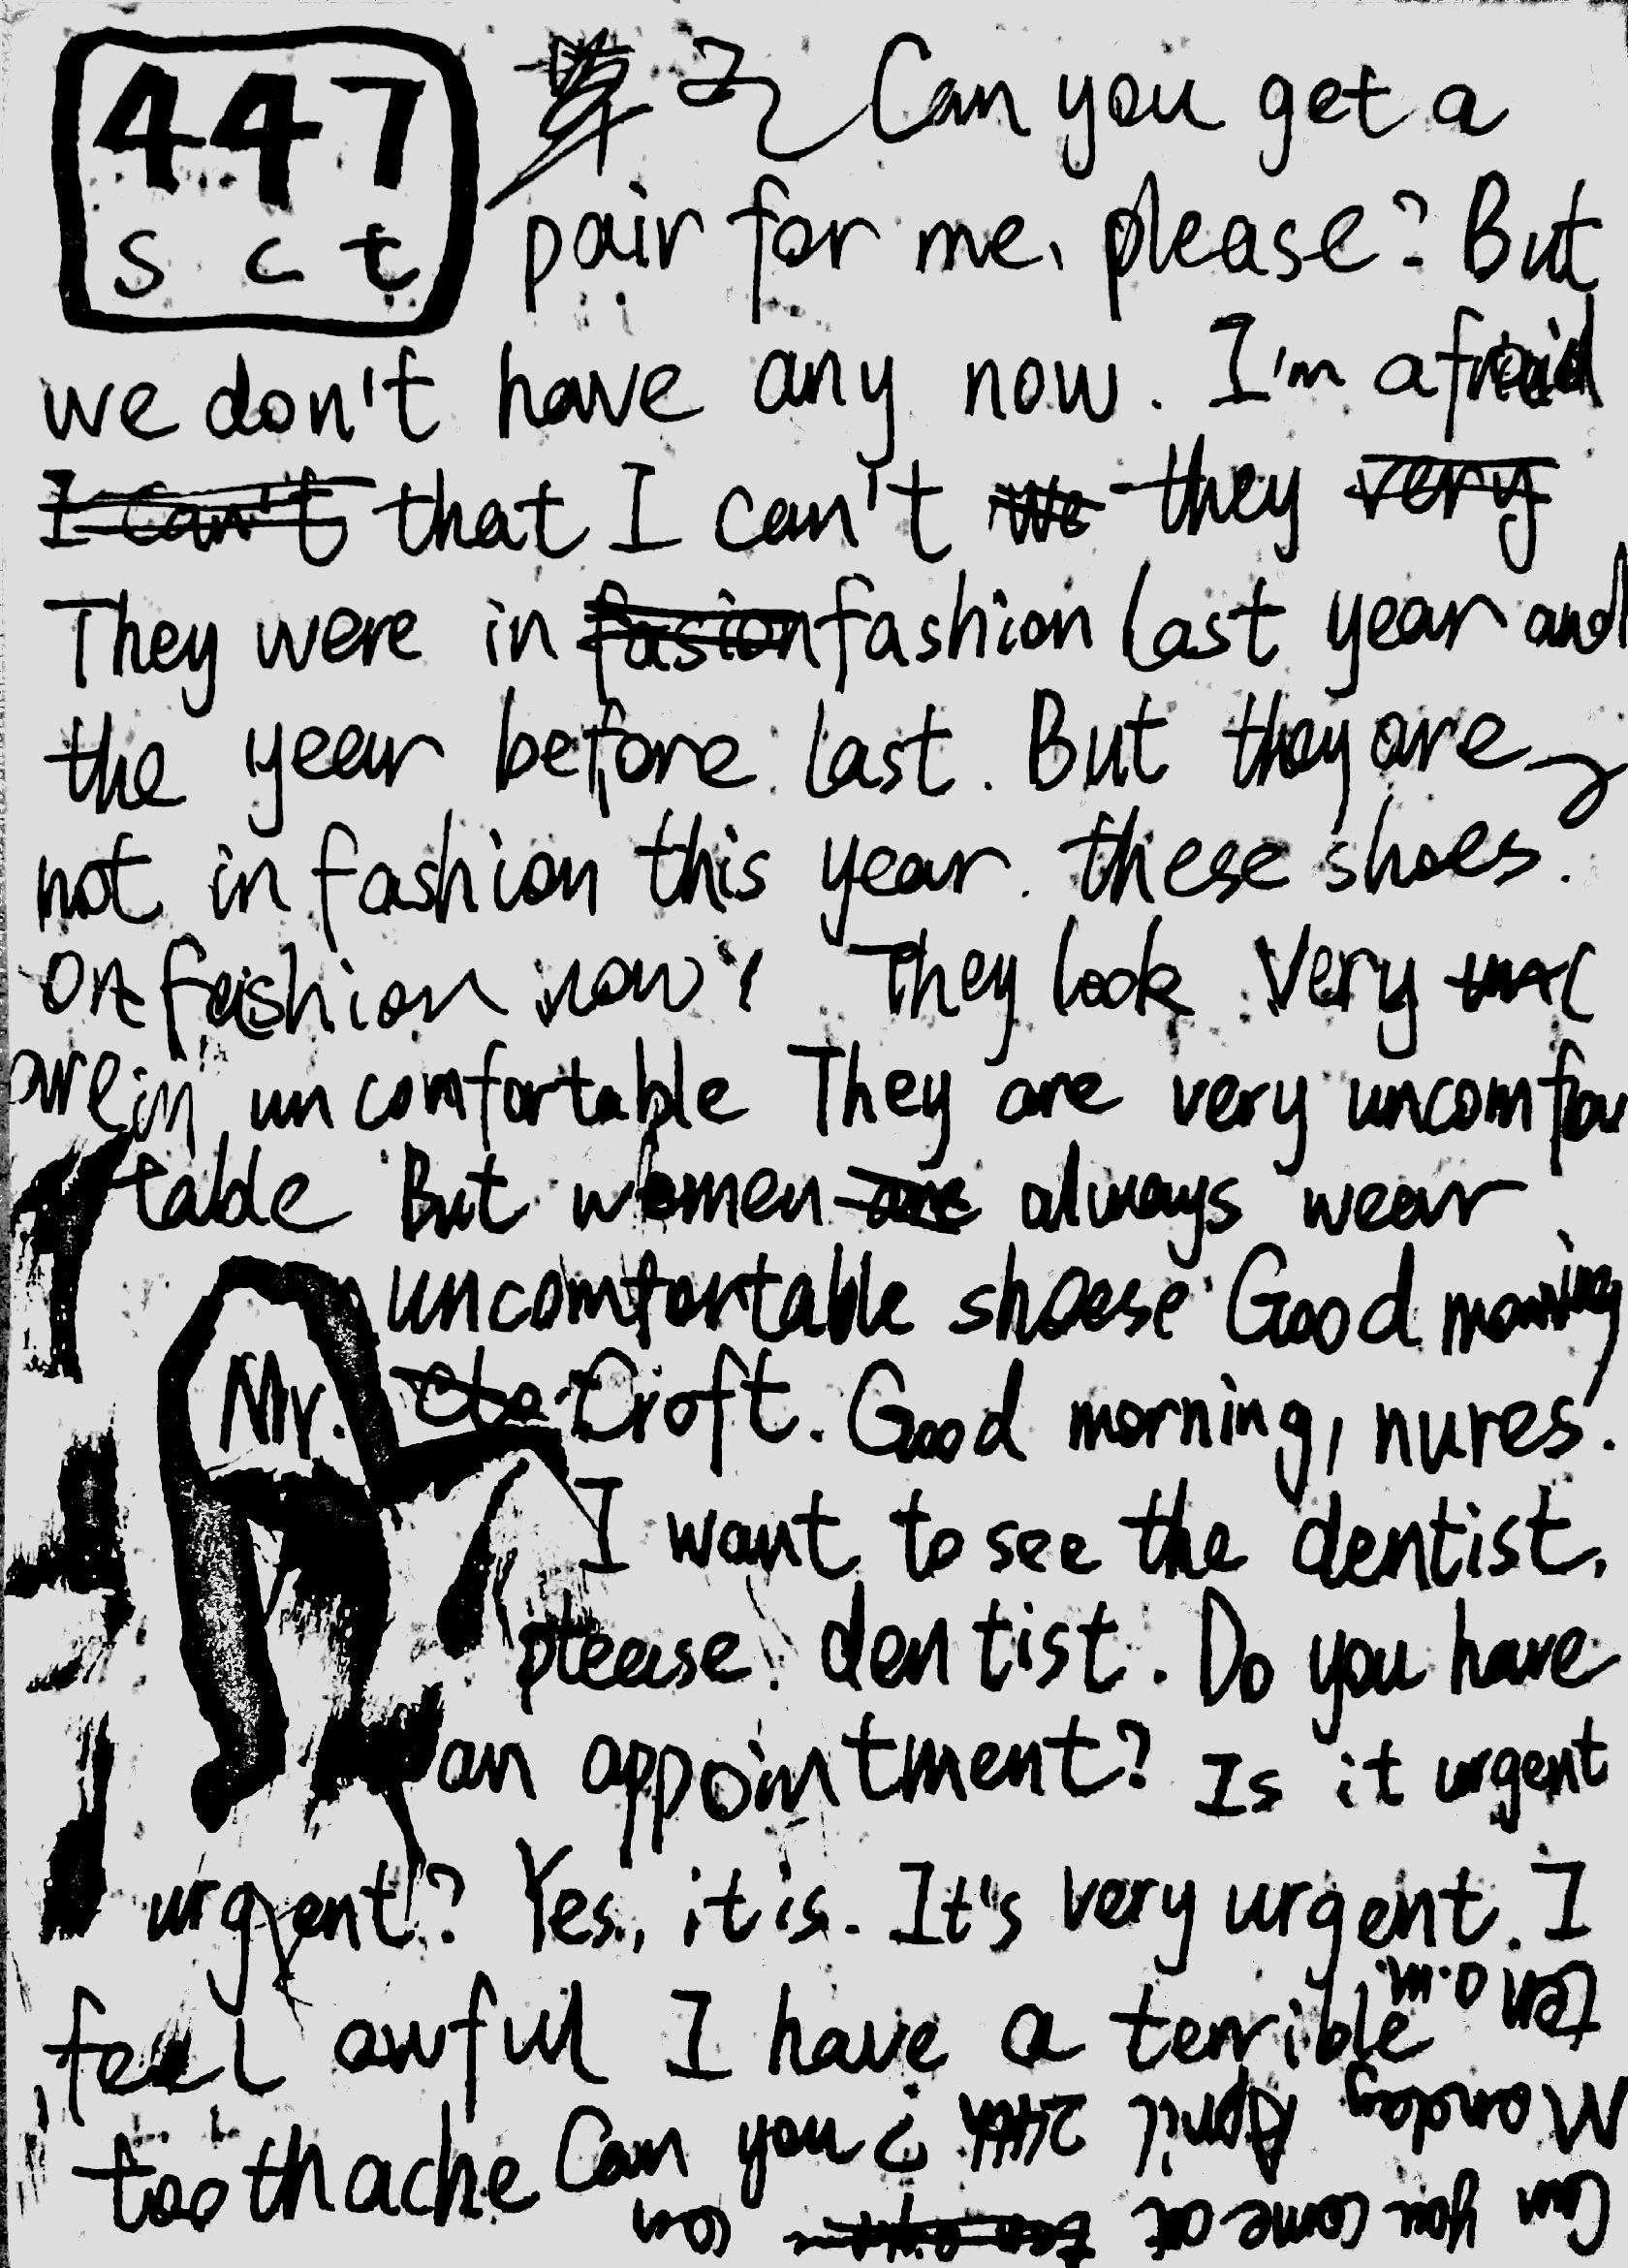 447
s c t
Can you get a
pair for me, please? But
we don't have any now. I'm afraid
I can't that I can't we they very
They were in fasion fashion last year and
the year before last. But they are
not in fashion this year. these shoes.
fashion now? They look very
are in uncomfortable They are very uncomfor
table But women are always wear
uncomfortable shoese Good morning
Mr. Croft. Good morning, nures.
I want to see the dentist,
please. dentist. Do you have
an appointment? Is it urgent
urgent? Yes, it is. It's very urgent. I
feel awful I have a terrible
toothache Can you
Can you come at
Monday April 24th ?
ten a.m.